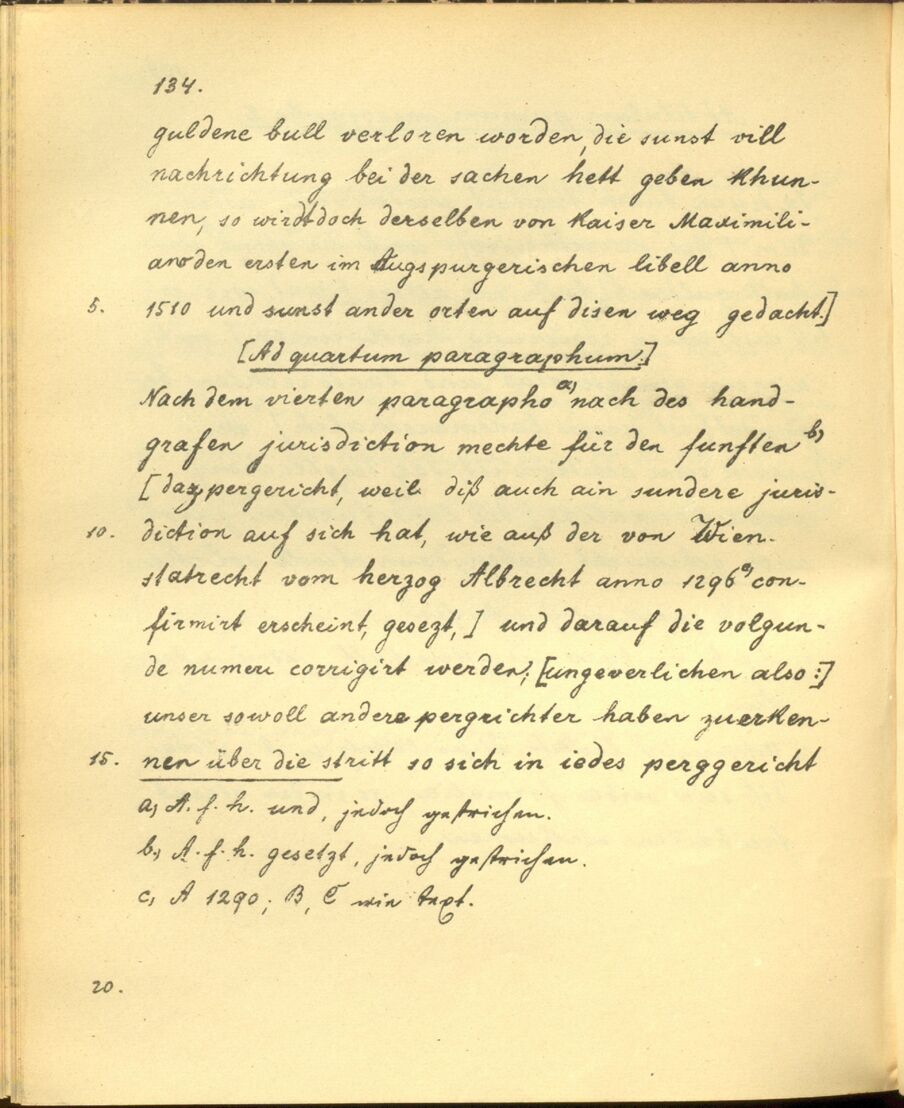 134.
guldene bull verloren worden, die sunst vill
nachrichtung bei der sachen hett geben khun-
nen, so wirdt doch derselben von kaiser Maximili-
ano den ersten im Augspurgerischen libell anno
5. 1510 und sunst ander orten auf disen weg gedacht.]
[Ad quartum paragraphum.]
Nach dem vierten paragrapho a) nach des hand-
grafen jurisdiction mechte für den funften b)
[daz pergericht, weil diß auch ain sundere juris-
10. diction auf sich hat, wie auß der von Wien.
statrecht vom herzog Albrecht anno 1296 c) con-
firmirt erscheint, gesezt,] und darauf die volgun-
de numeri corrigirt werden; [ungeverlichen also:]
unser sowoll andere pergrichter haben zu erken-
15. nen über die stritt so sich in iedes perggericht
a) A. f. h. und, jedoch gestrichen.
b) A. f. h. gesetzt, jedoch gestrichen.
c) A 1290; B, C wie Text.
20.